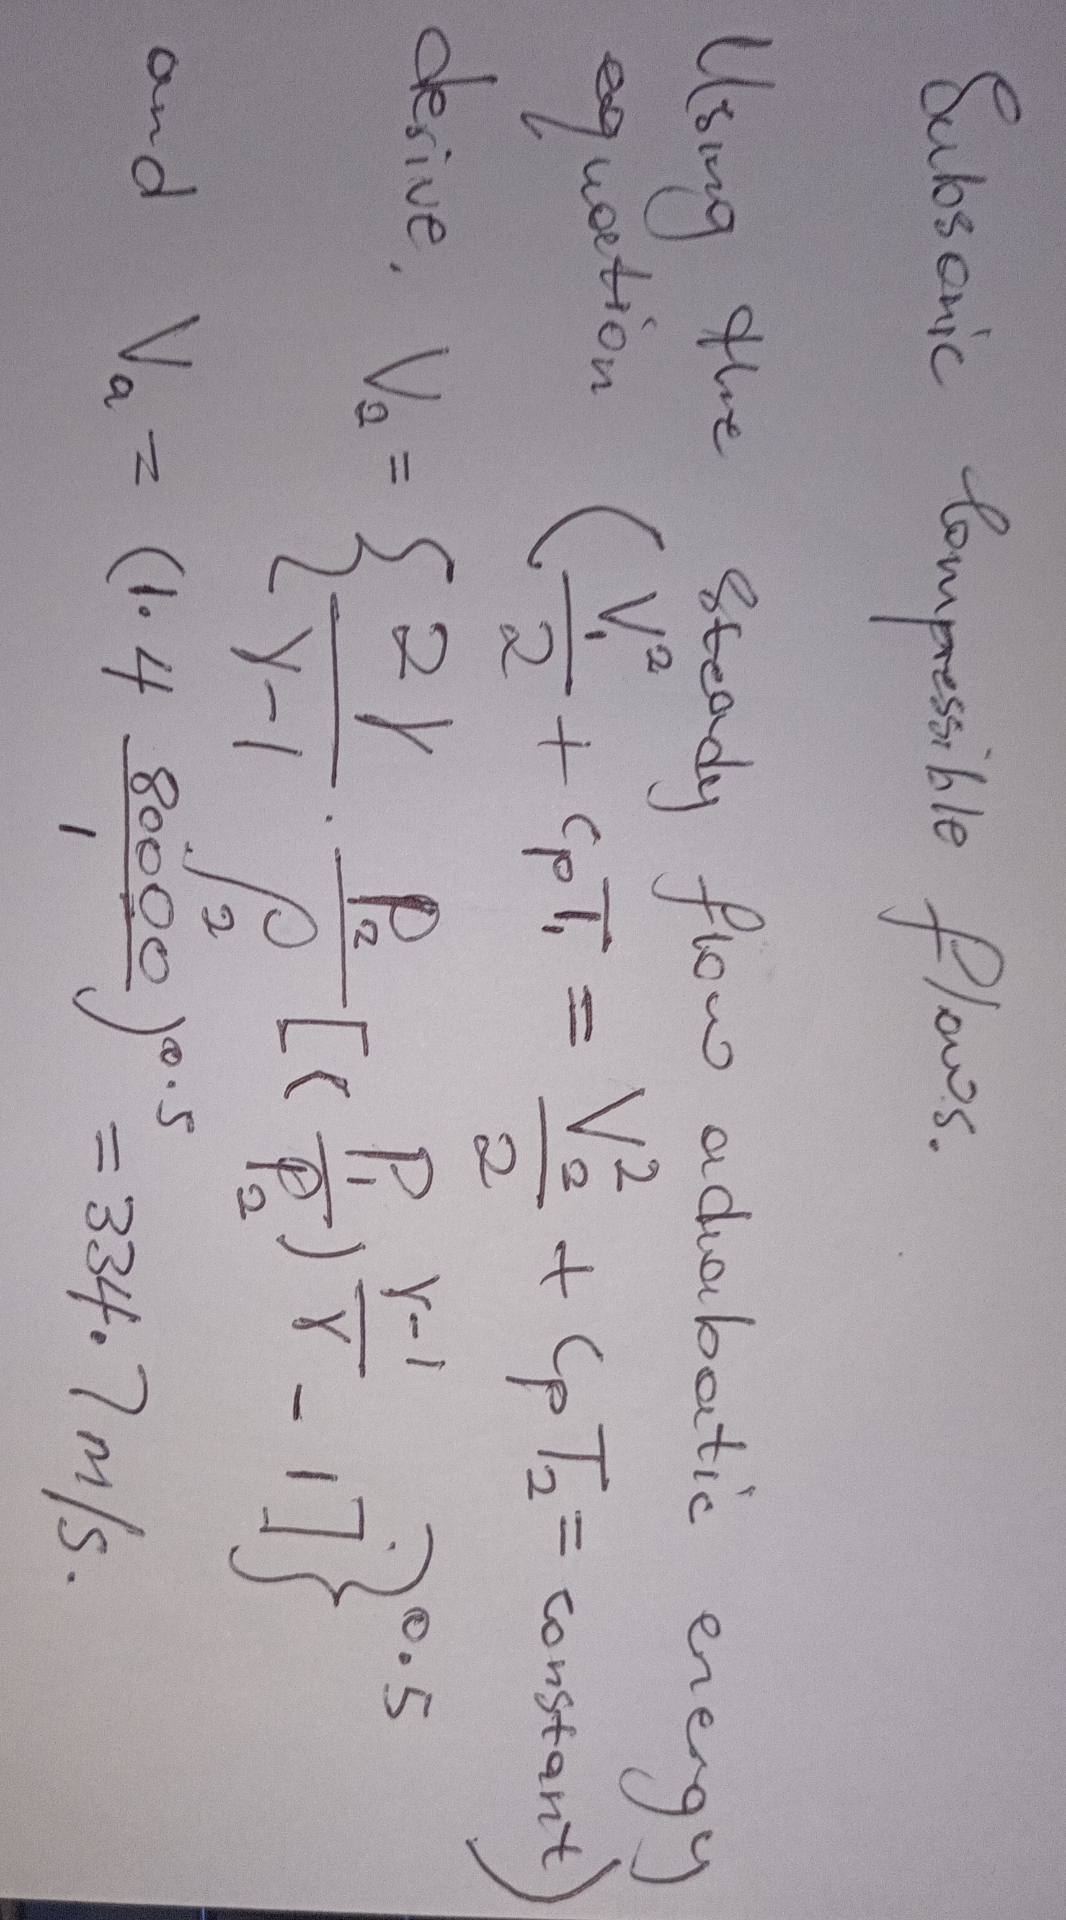 Subsonic Compressible flows.
Using the steady flow adiabatic energy
equation (V₁²/2 + cpT₁ = V₂²/2 + cpT₂ = constant)
derive, V₂ = { 2γ/γ-1 · P₂/ρ₂ [(P₁/P₂)^γ-1/γ - 1]}^0.5
and Va = (1.4 80000/1)^0.5 = 334.7 m/s.